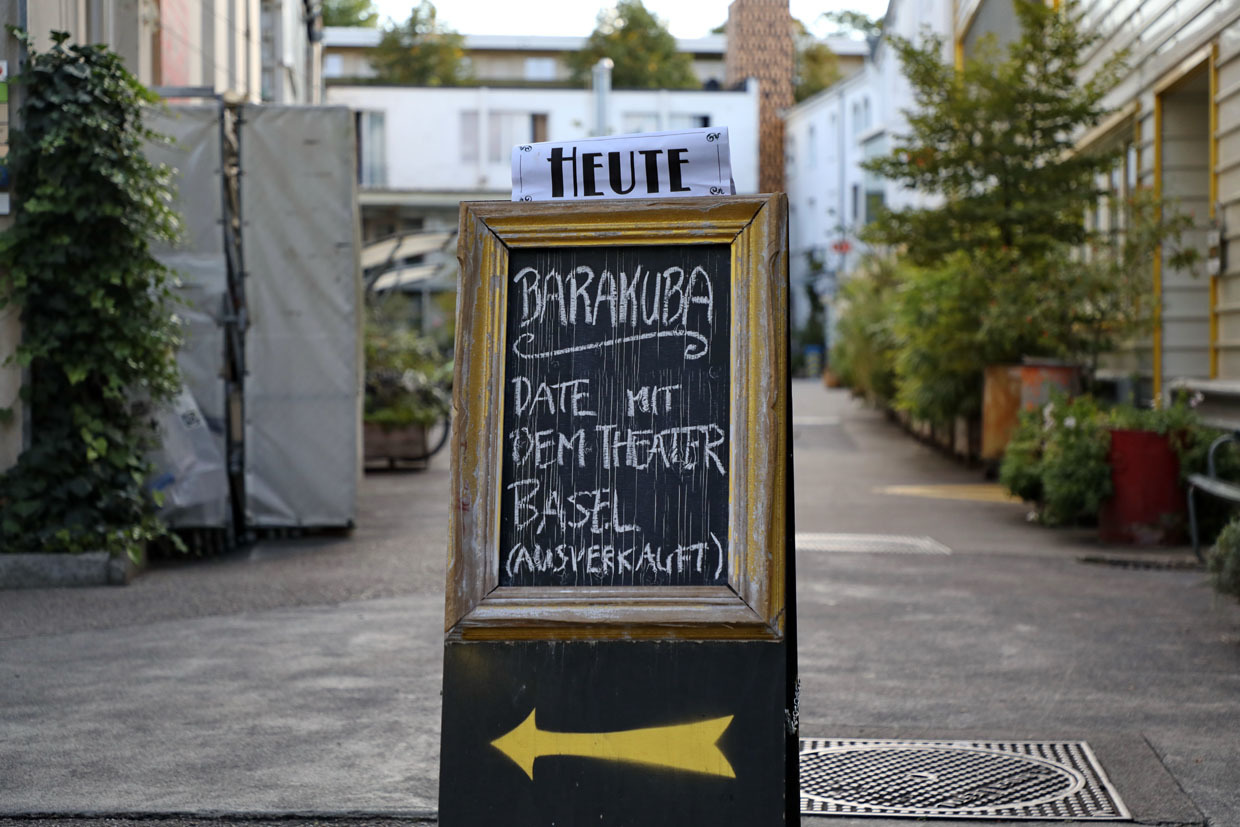 HEUTE
BARAKUBA
DATE MIT
DEM THEATER
BASEL
(AUSVERKAUFT)